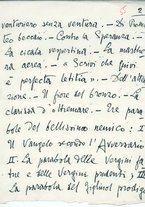 2
venturiero senza ventura. — Di Romeo
beccaio. — Contro la Speranza. —
La cicala vespertina. — La maschera
aerea. — « Scrivi che quivi
è perfetta letitia ». — Dell'at
zione. — Il fiore del bronzo. — La
clarissa d'oltremare. — Tre para
bole del bellissimo nemico: I
Il Vangelo secondo l'Avversario
II La parabola delle Vergini fa
tue e delle Vergini prudenti; III
La parabola del figliuol prodigo